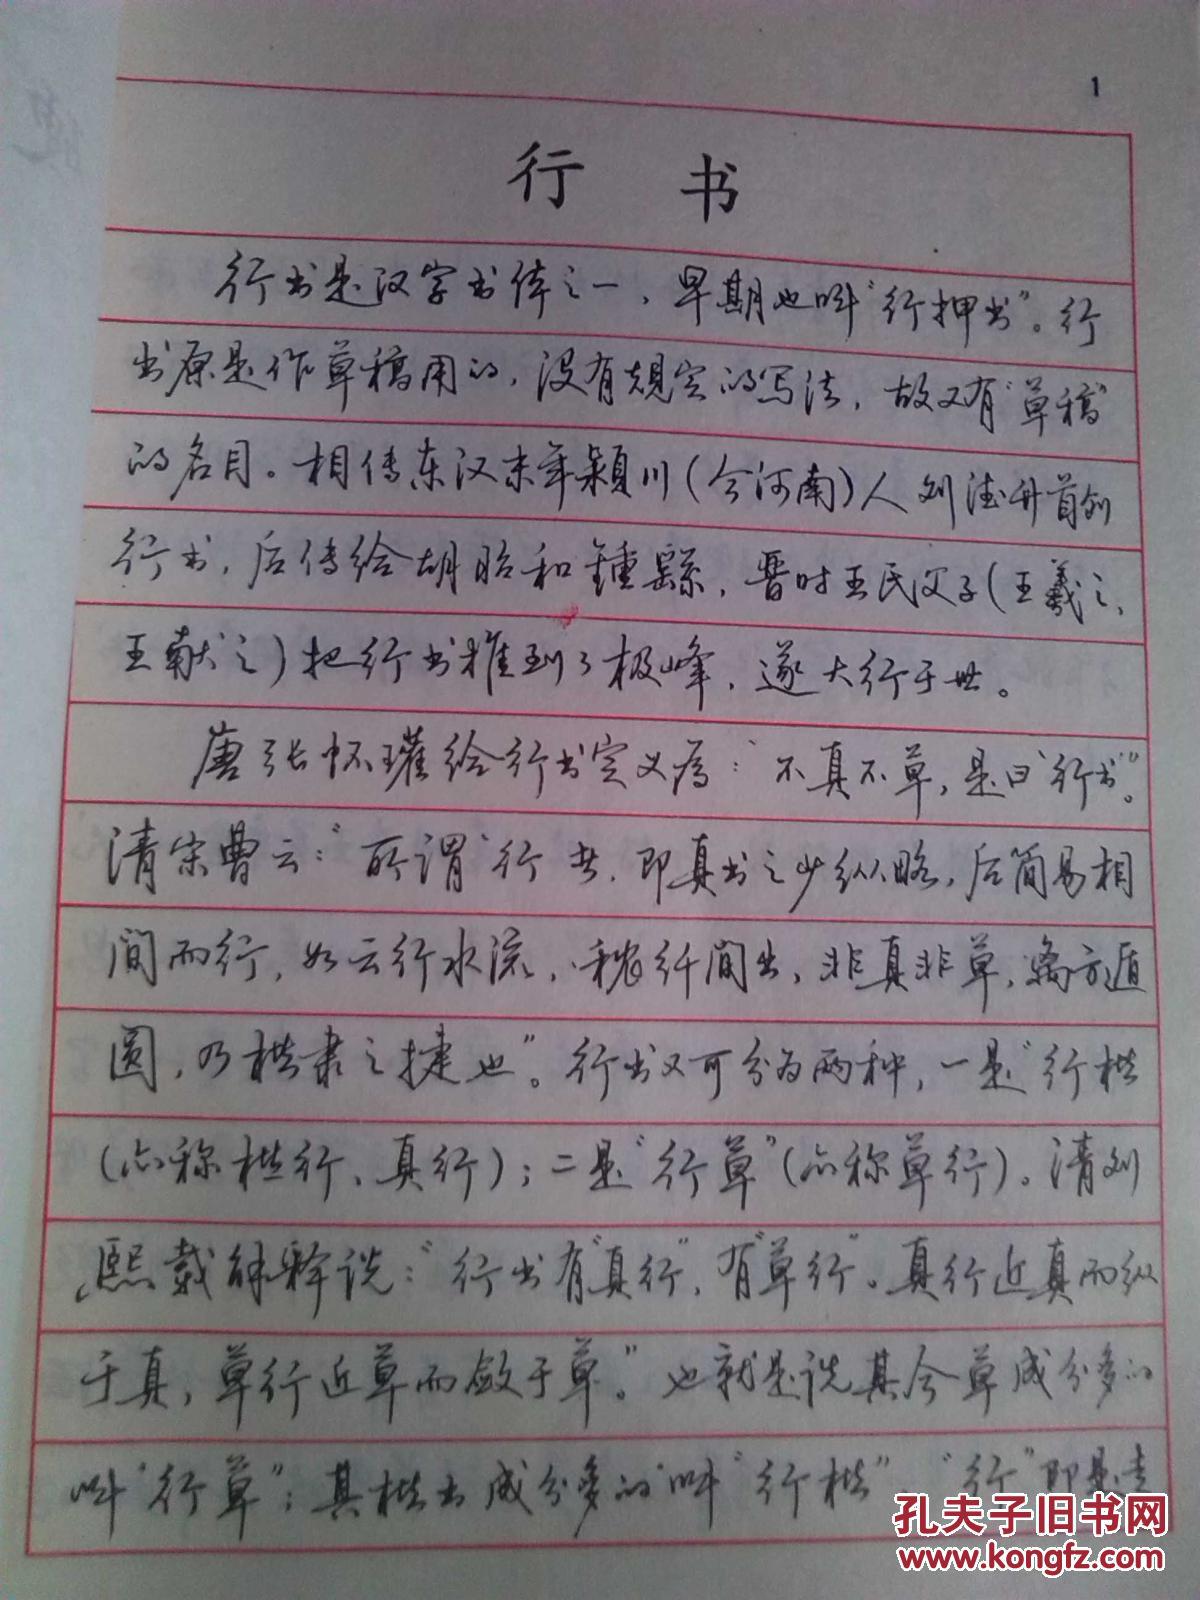 1
行 书
行书是汉字书体之一，早期也叫“行押书”。行
书原是作草稿用的，没有规定的写法，故又有“草稿”
的名目。相传东汉末年颍川（今河南）人刘德升首创
行书，后传给胡昭和鍾繇，晋时王氏父子（王羲之、
王献之）把行书推到了极峰，遂大行于世。
唐张怀瓘给行书定义为：“不真不草，是曰‘行书’”。
清宋曹云：“所谓‘行’者，即真书之少纵略，后简易相
间而行，如云行水流，秾纤间出，非真非草，离方遁
圆，乃楷隶之捷也”。行书又可分为两种，一是“行楷
（亦称楷行、真行）；二是“行草”（亦称草行）。清刘
熙载解释说：“行书有“真行”，有“草行”。真行近真而纵
于真，草行近草而敛于草。”也就是说其含草成分多的
叫“行草”；其楷书成分多的叫“行楷”、“行”即是走
孔夫子旧书网
www.kongfz.com